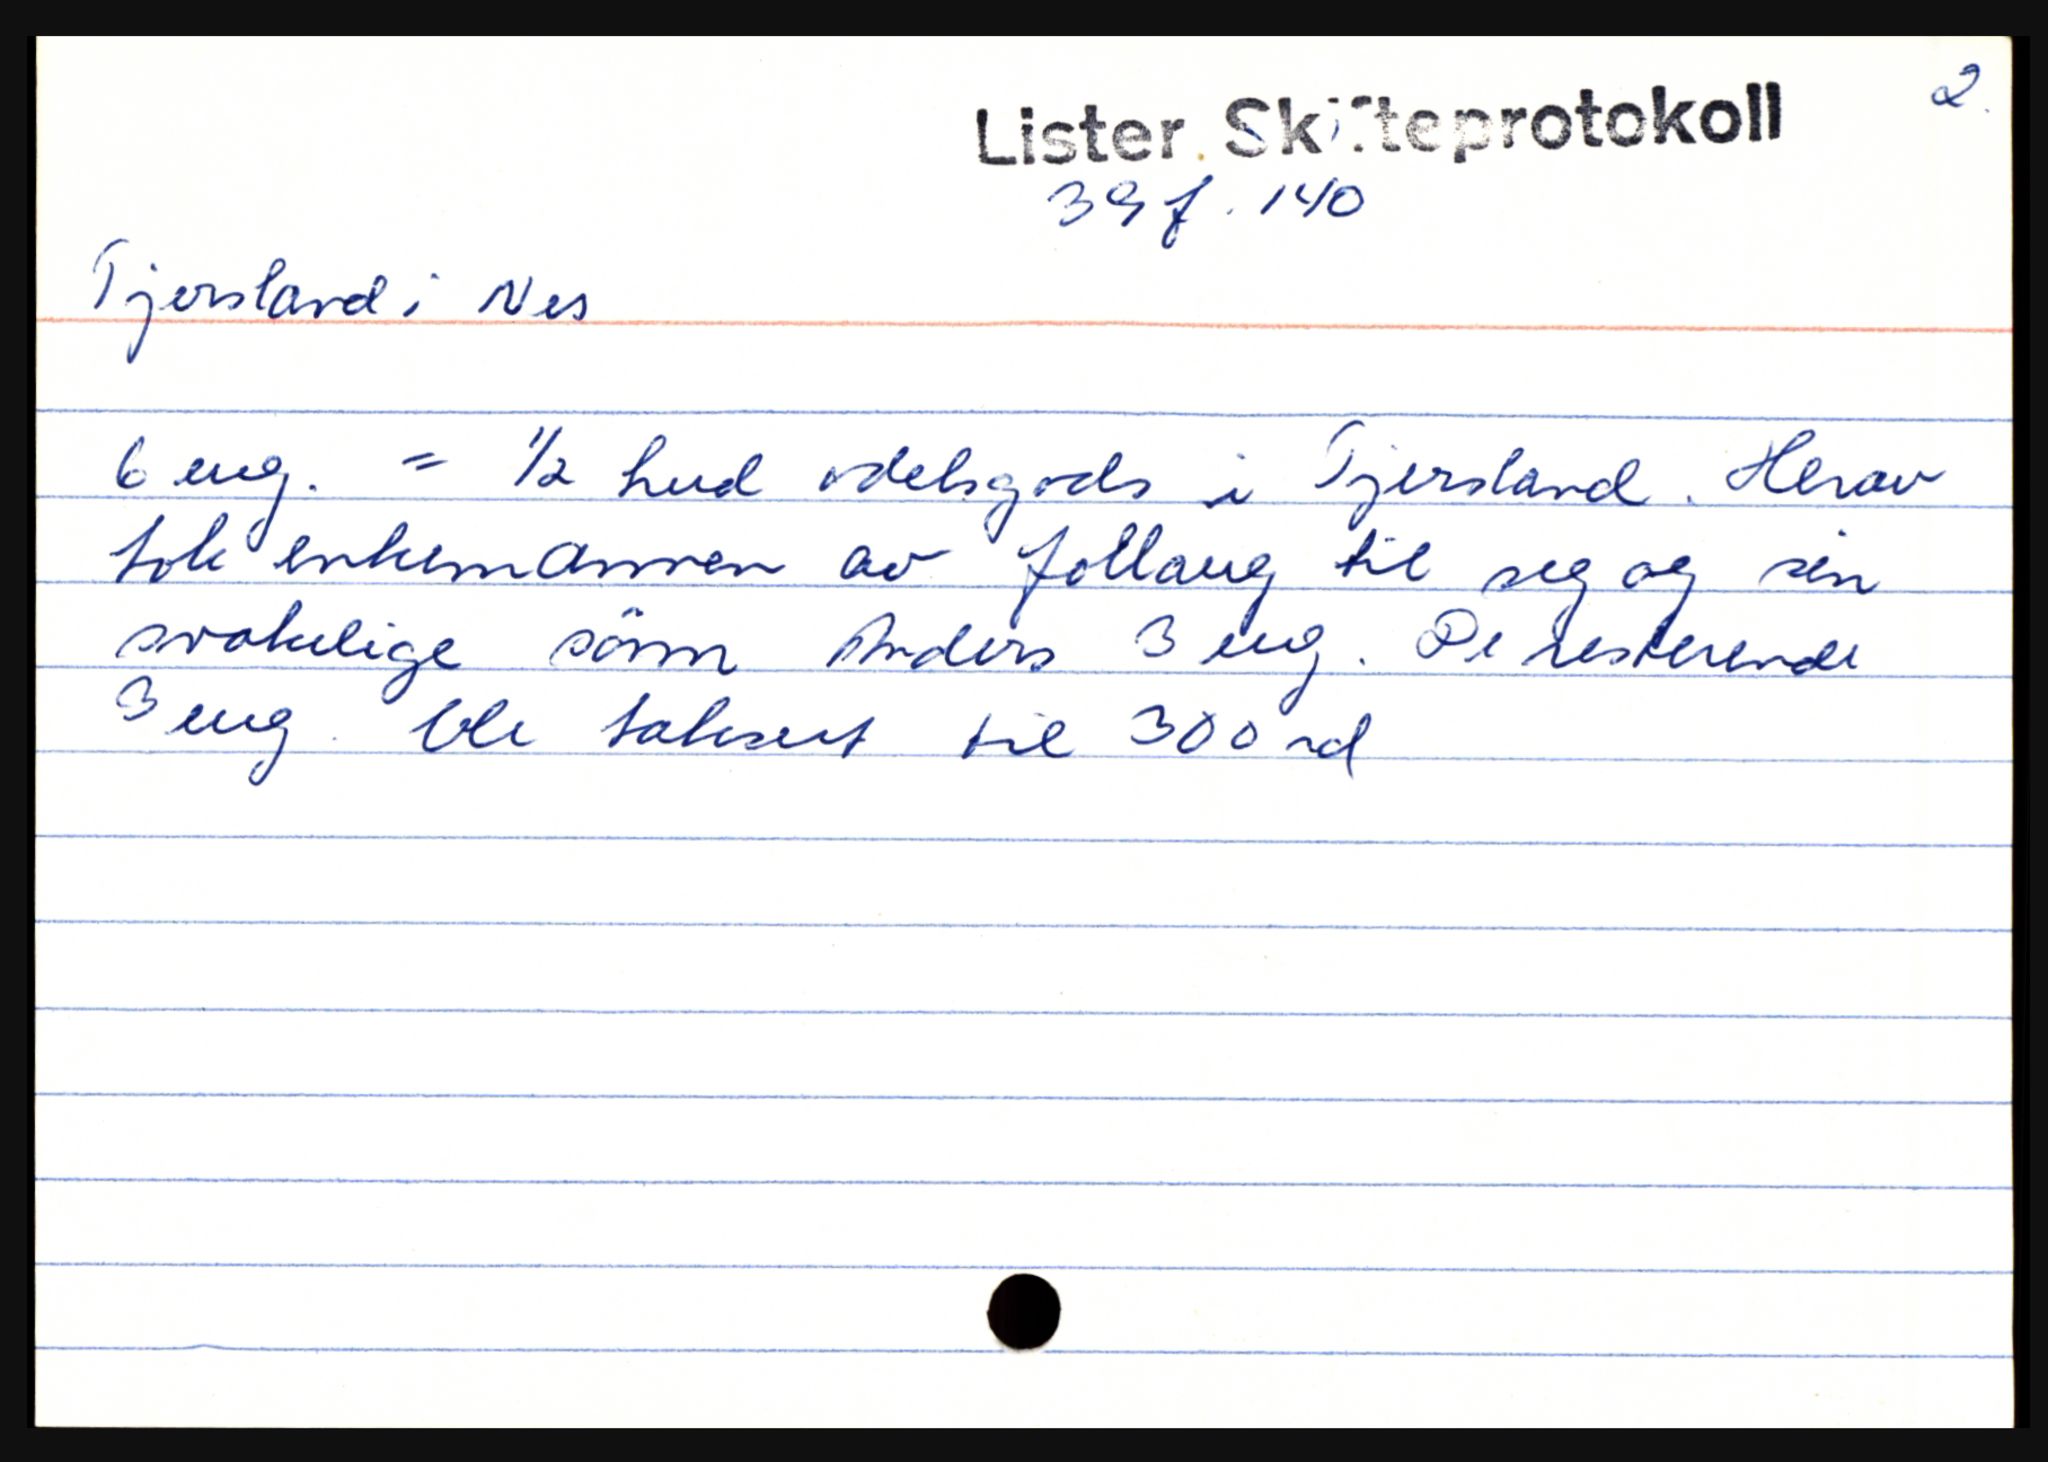 2.
Lister Skifteprotokoll
39 f. 140
Tjersland i Nes
6 eng. = 1/2 hud odelsgods i Tjersland. Herav
tok enkemannen av follaug til seg og sin
svakelige sönn Anders 3 eng. De resterende
3 eng. ble taksert til 300 rd